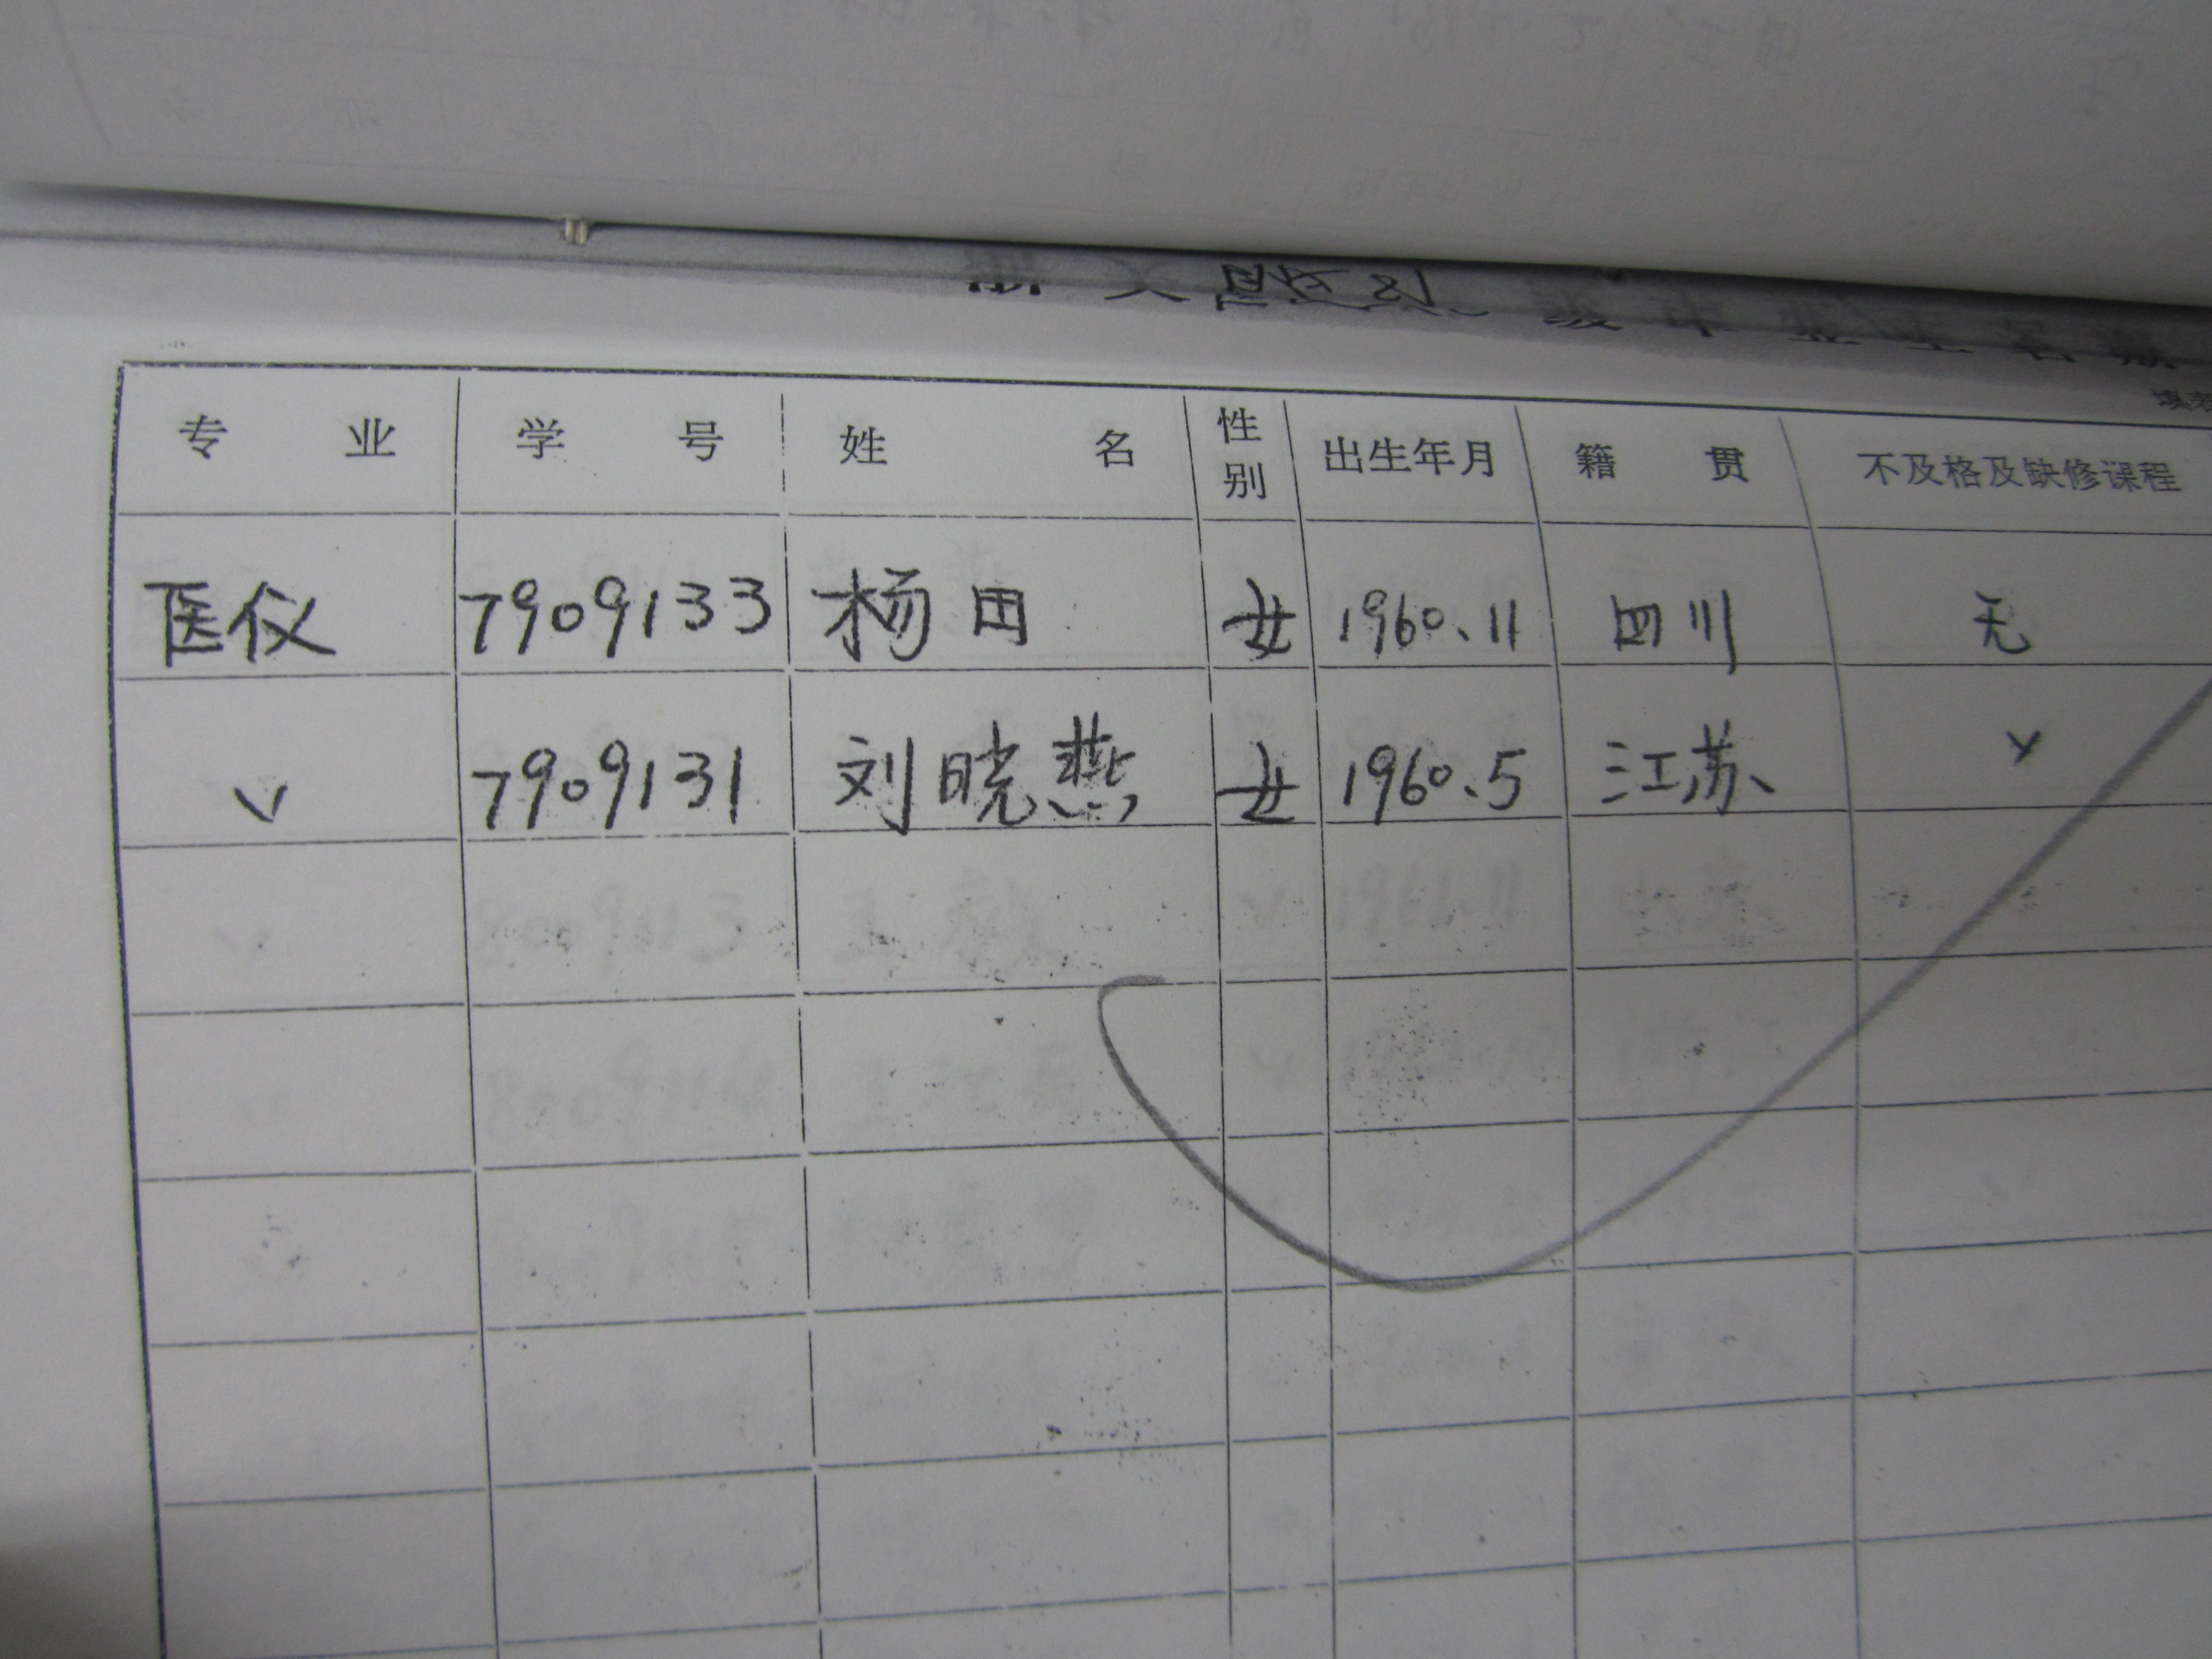 级毕业生名册
专业 学号 姓名 性别 出生年月 籍贯 不及格及缺修课程
医仪 7909133 杨田 女 1960.11 四川 无
〃 7909131 刘晓燕 女 1960.5 江苏 〃